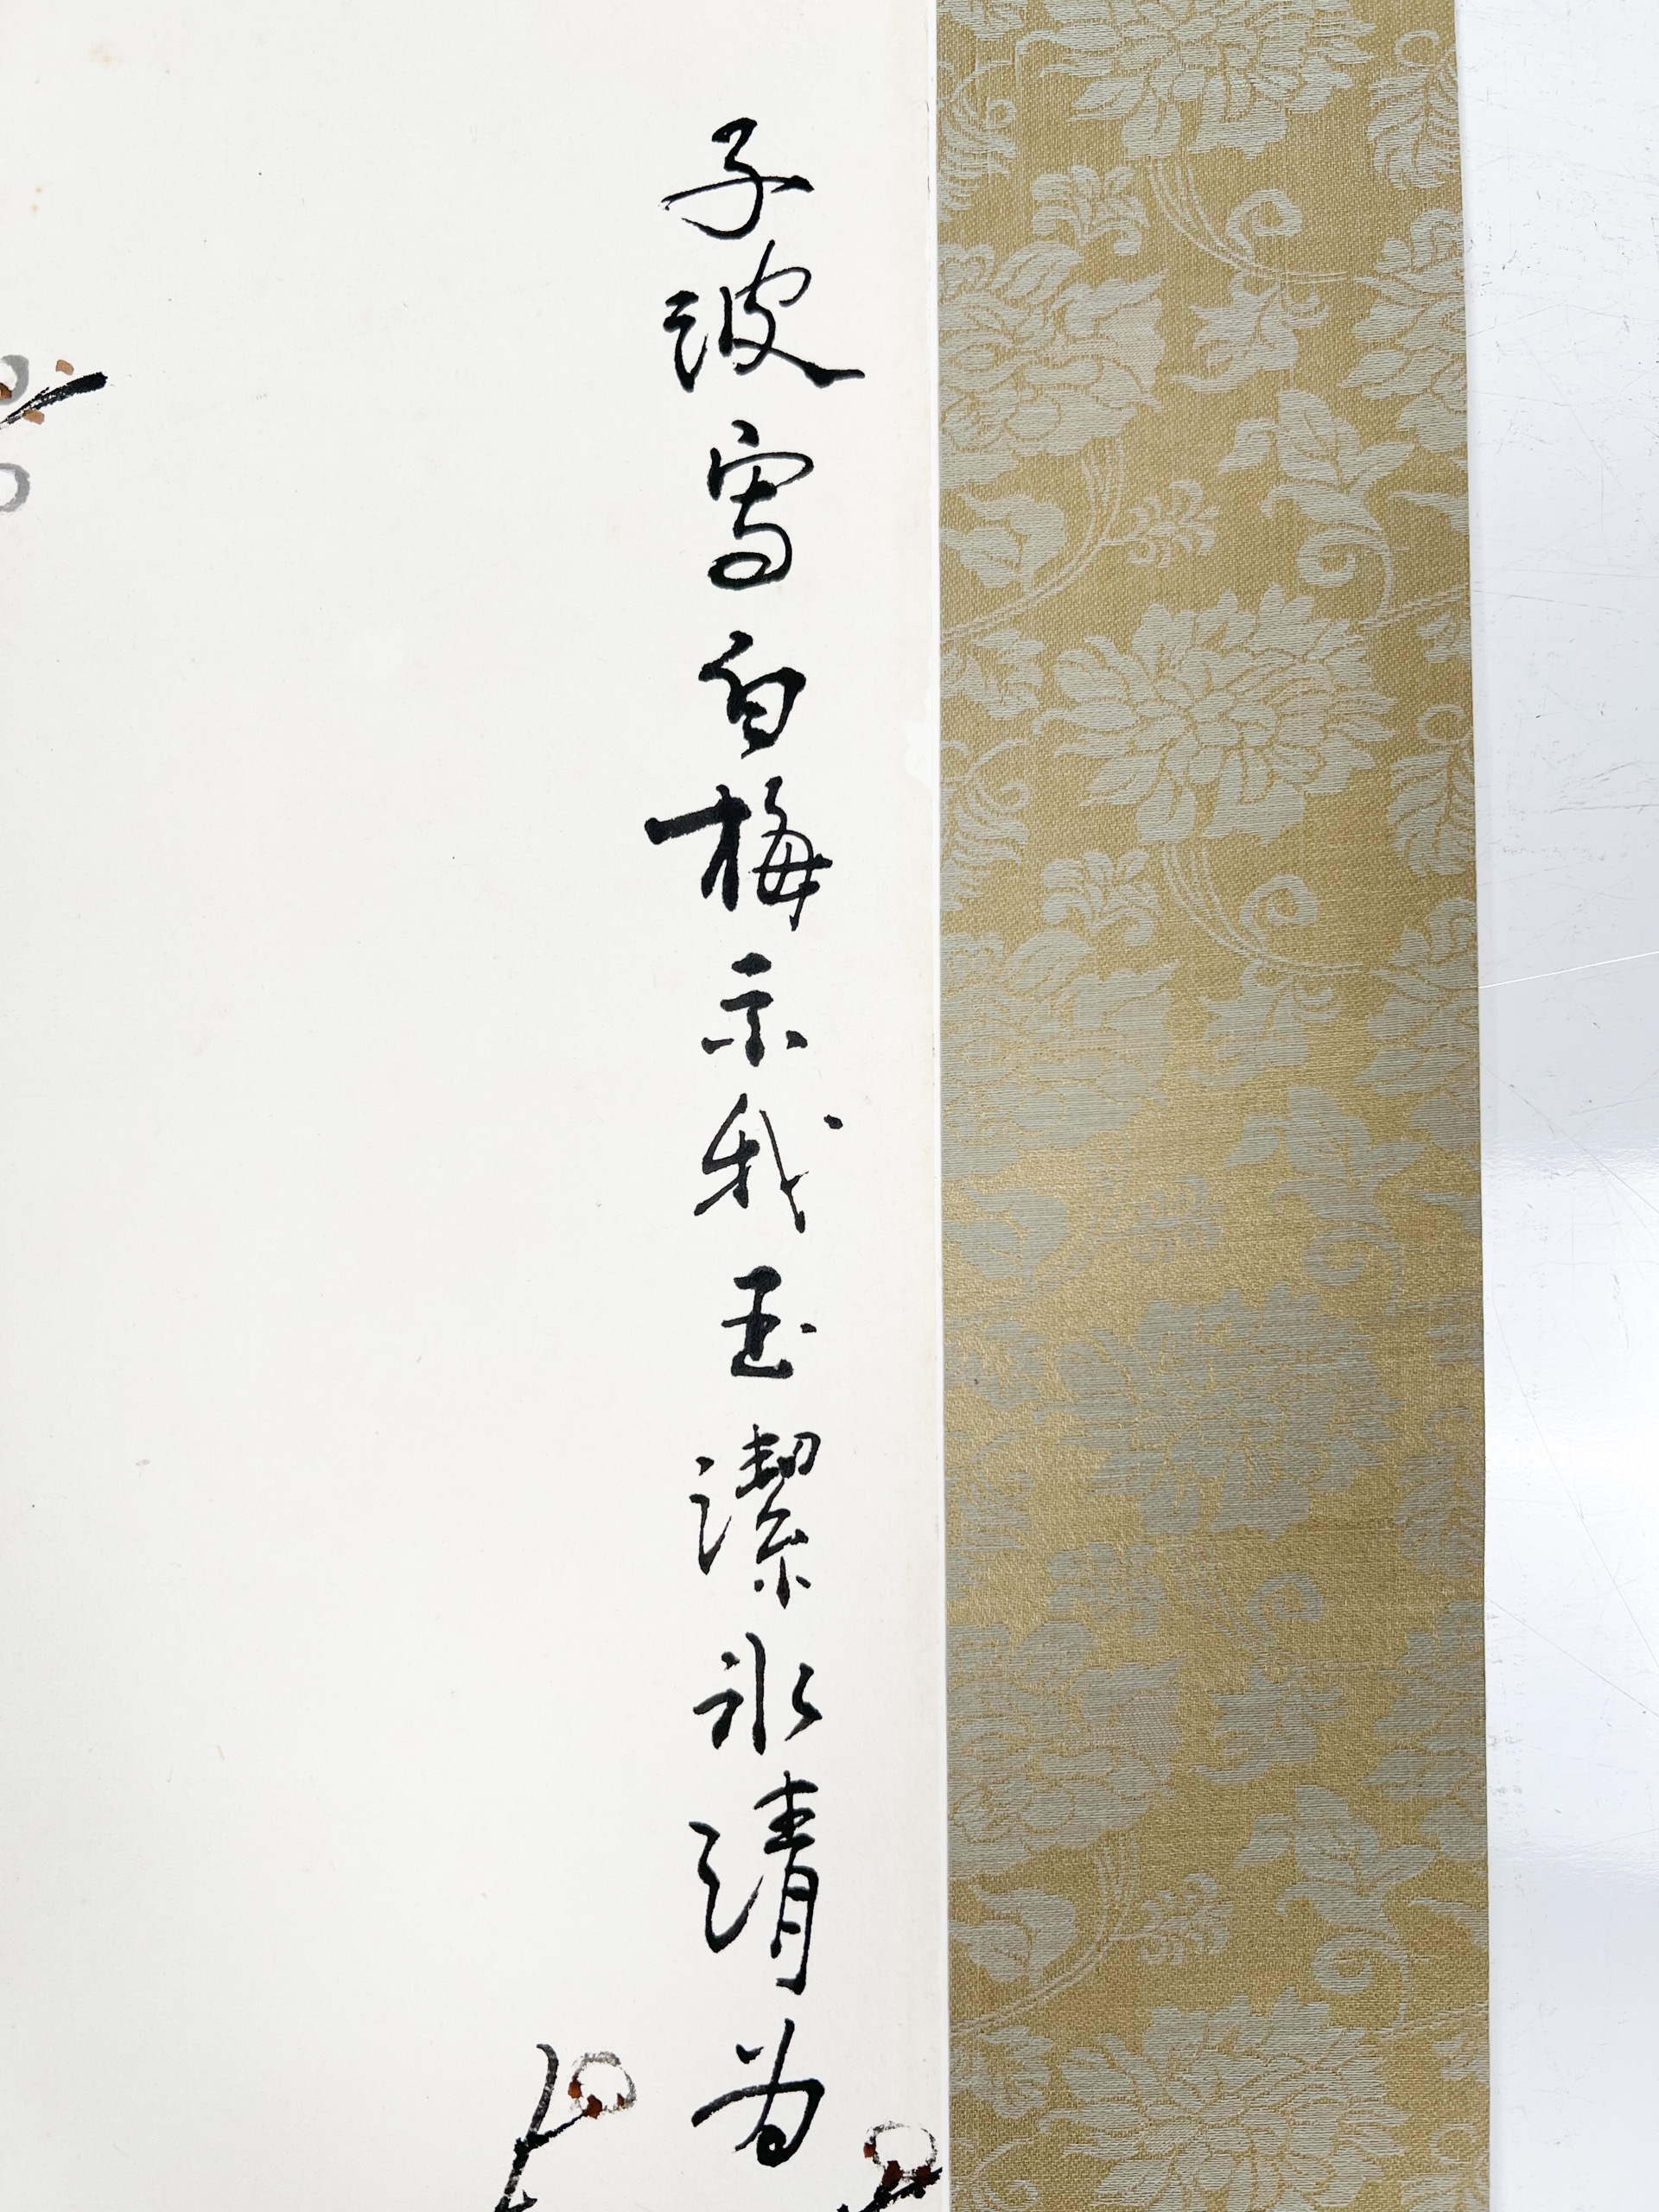 子波寫白梅示我玉潔冰清為